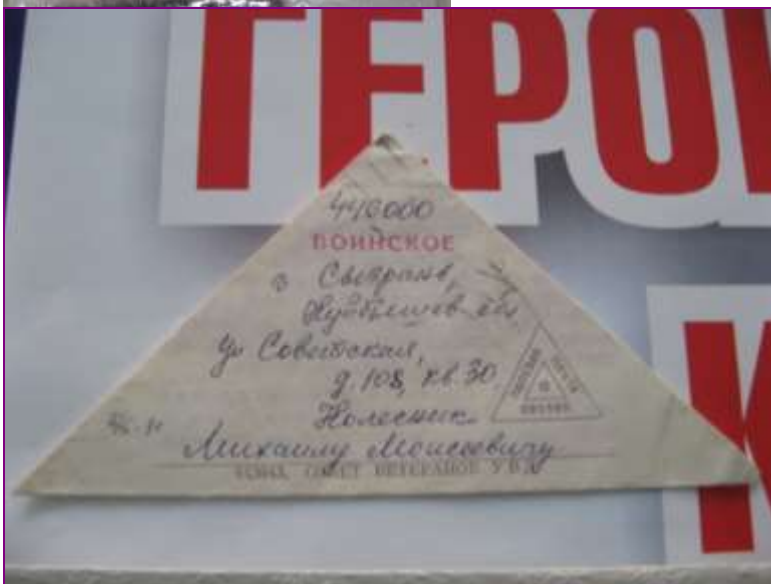 ГЕРОИ
К
446000
ВОИНСКОЕ
г Сызрань,
Куйбышев. обл.
ул Советская,
д. 108, кв. 30.
Колесник
Михаилу Моисеевичу
СОВЕТ ВЕТЕРАНОВ УВД